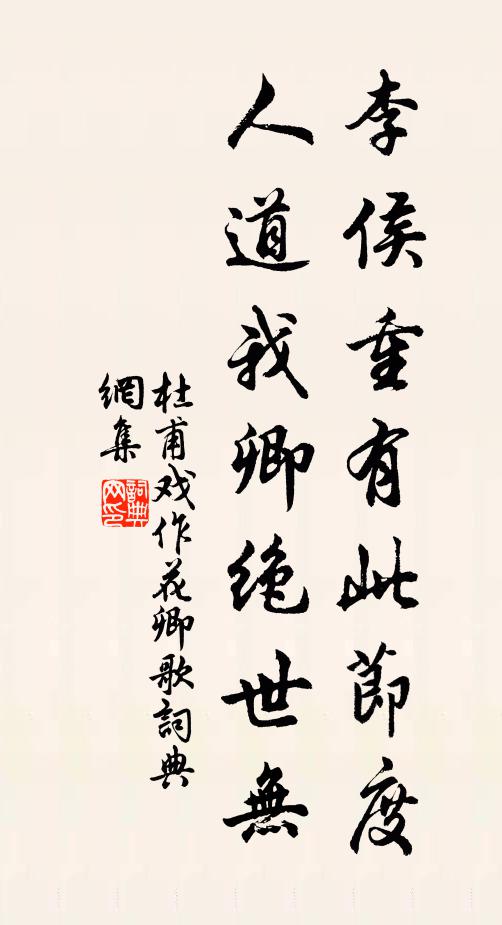 李侯重有此節度
人道我卿絶世無
杜甫戏作花卿歌詞典
網集
詞典
网印